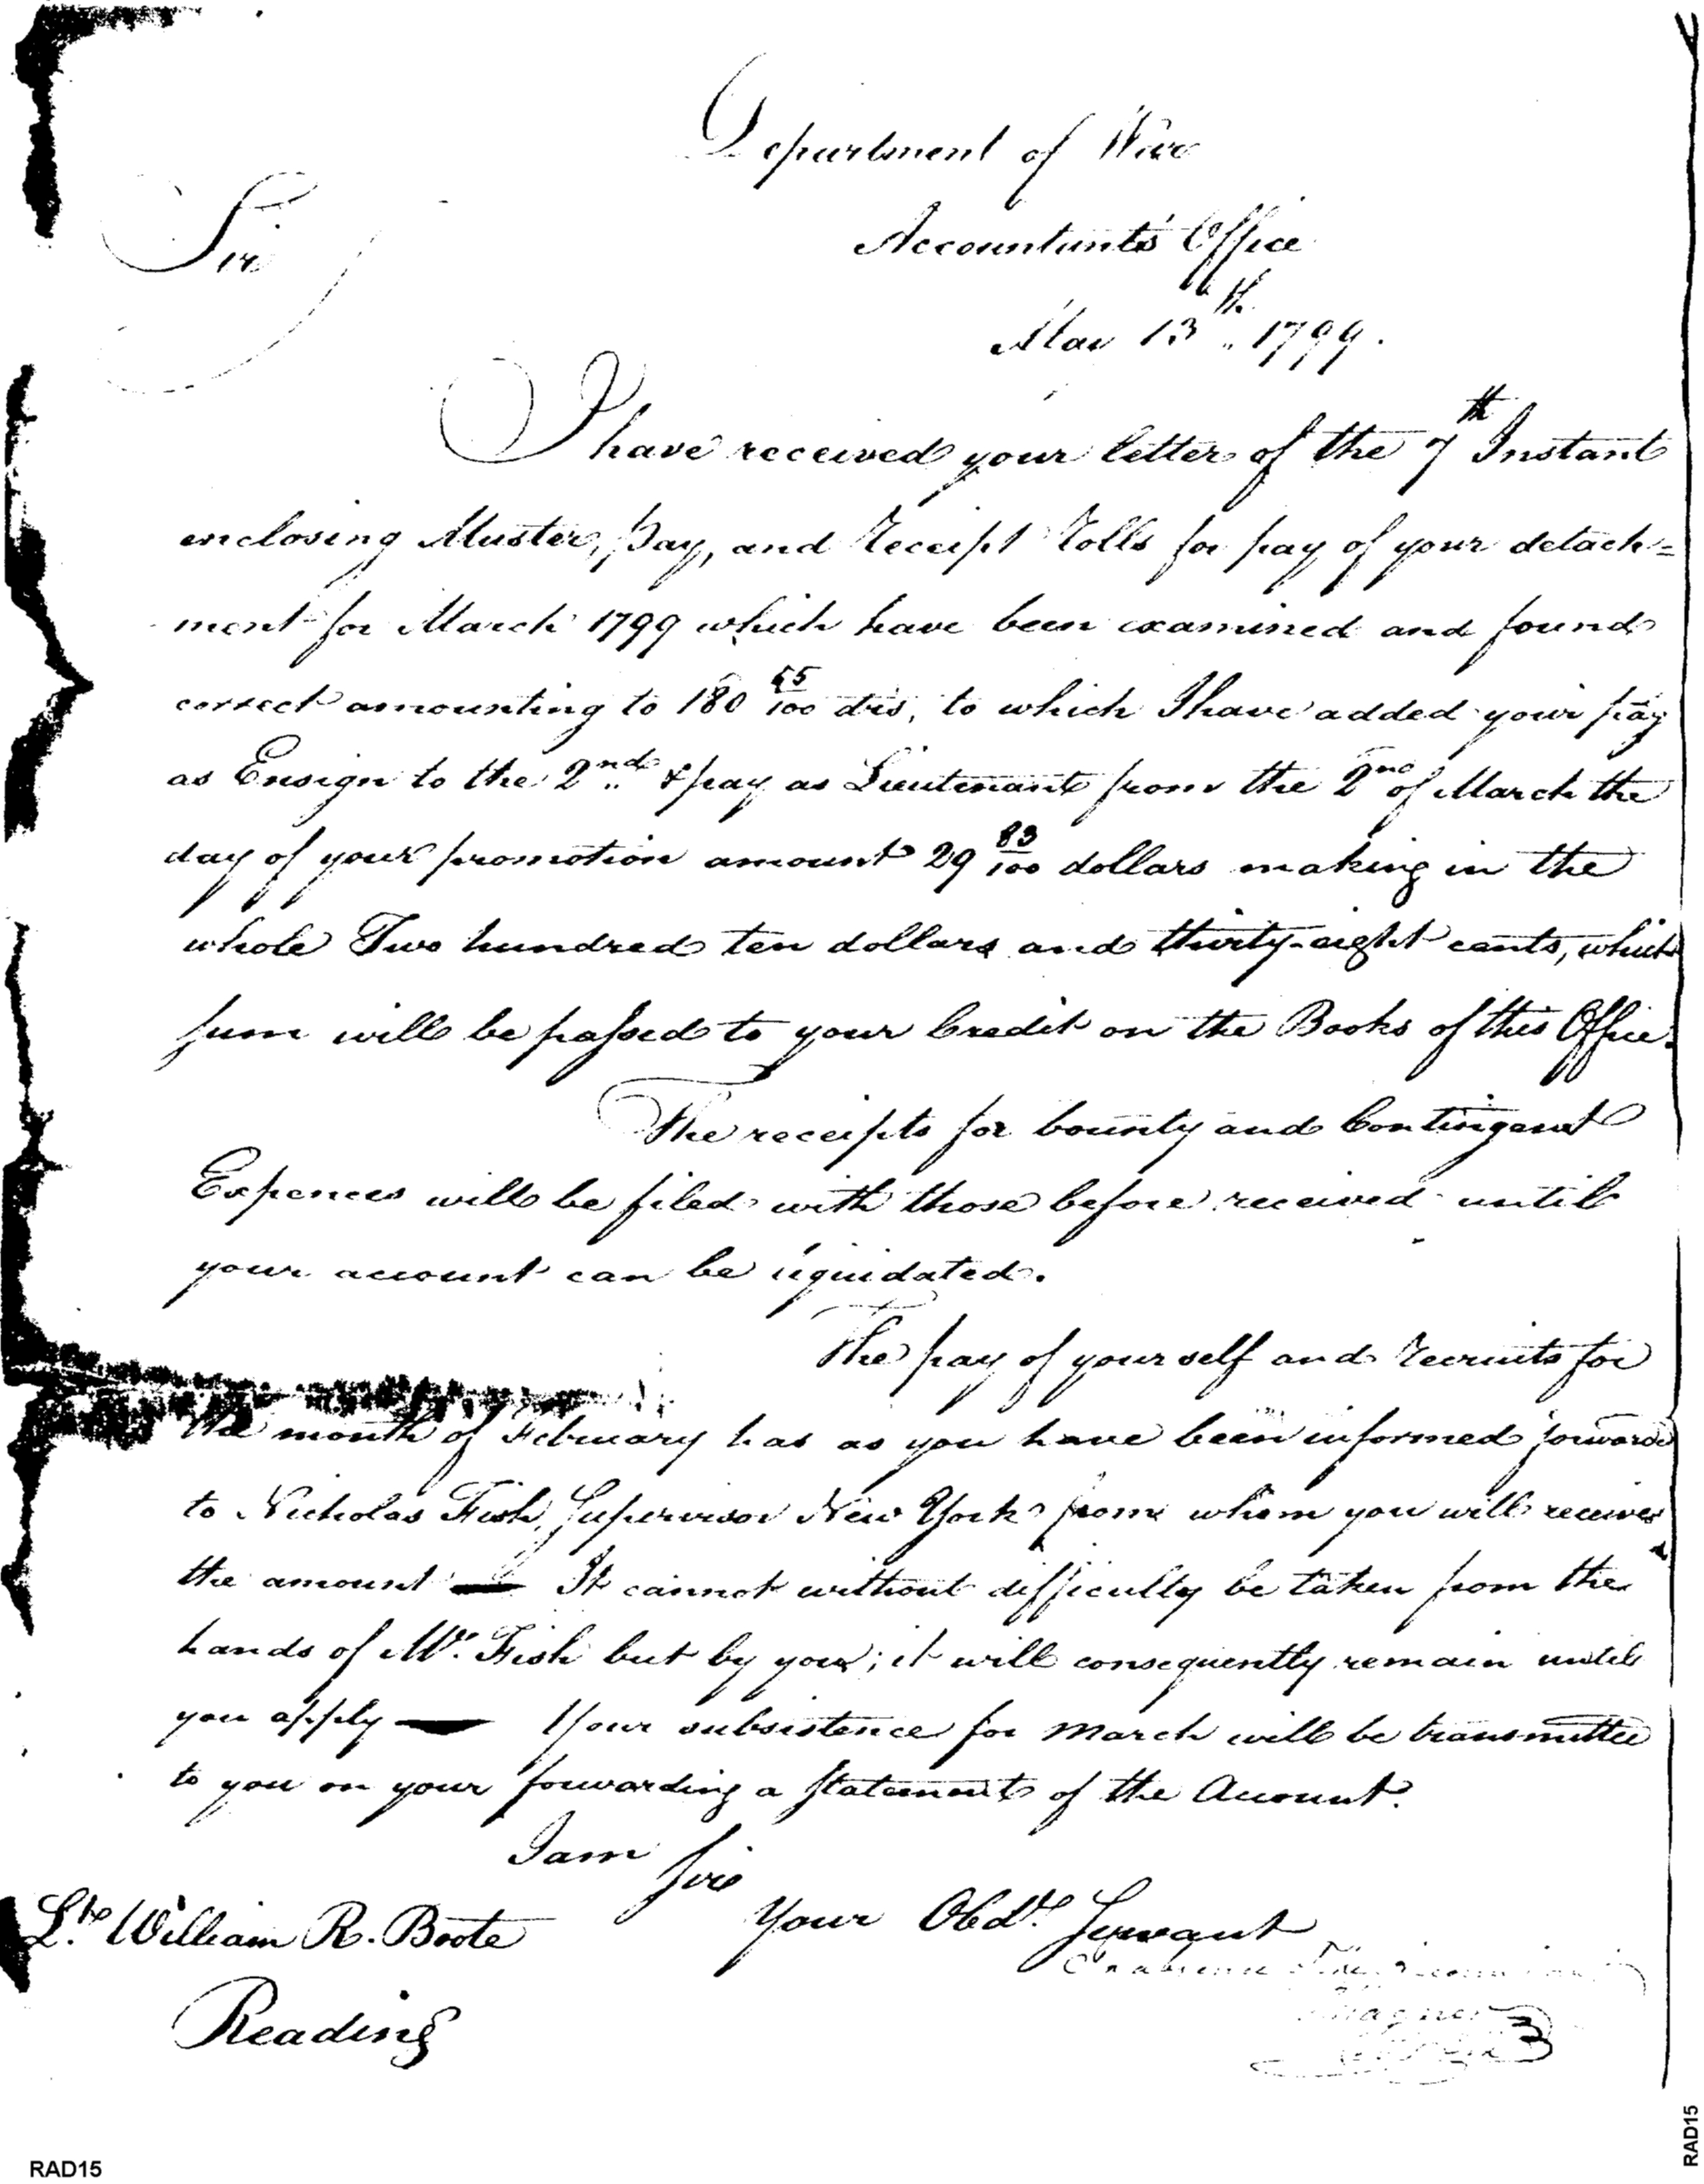 Department of War
Sir
Accountants Office
May 13th 1799.
I have received your letter of the 7th Instant
enclosing Muster, Pay, and Receipt Rolls for pay of your detach=
ment for March 1799 which have been examined and found
correct amounting to 180 55/100 drs, to which I have added your pay
as Ensign to the 2nd & pay as Lieutenant from the 2nd of March the
day of your promotion amount 29 83/100 dollars making in the
whole Two hundred ten dollars and thirty-eight cents, which
sum will be passed to your Credit on the Books of this Office.
The receipts for bounty and Contingent
Expences will be filed with those before received until
your account can be liquidated.
The pay of yourself and recruits for
the month of February has as you have been informed forwarded
to Nicholas Fish, Supervisor New York from whom you will receive
the amount — It cannot without difficulty be taken from the
hands of Mr. Fish but by you; it will consequently remain until
you apply — Your subsistence for March will be transmitted
to you on your forwarding a Statement of the Account.
I am Sir
Your Obdt. Servant
Lt. William R. Boote
Reading
RAD15
RAD15